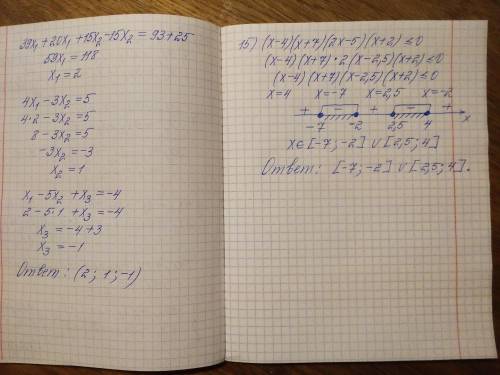 39x₁ + 20x₁ + 15x₂ - 15x₂ = 93 + 25
59x₁ = 118
x₁ = 2
4x₁ - 3x₂ = 5
4·2 - 3x₂ = 5
8 - 3x₂ = 5
-3x₂ = -3
x₂ = 1
x₁ - 5x₂ + x₃ = -4
2 - 5·1 + x₃ = -4
x₃ = -4 + 3
x₃ = -1
Ответ: (2; 1; -1)
15) (x-4)(x+7)(2x-5)(x+2) ≤ 0
(x-4)(x+7)·2(x-2,5)(x+2) ≤ 0
(x-4)(x+7)(x-2,5)(x+2) ≤ 0
x=4 x=-7 x=2,5 x=-2
+ - + - +
-7 -2 2,5 4 x
x∈[-7; -2] ∪ [2,5; 4]
Ответ: [-7; -2] ∪ [2,5; 4].